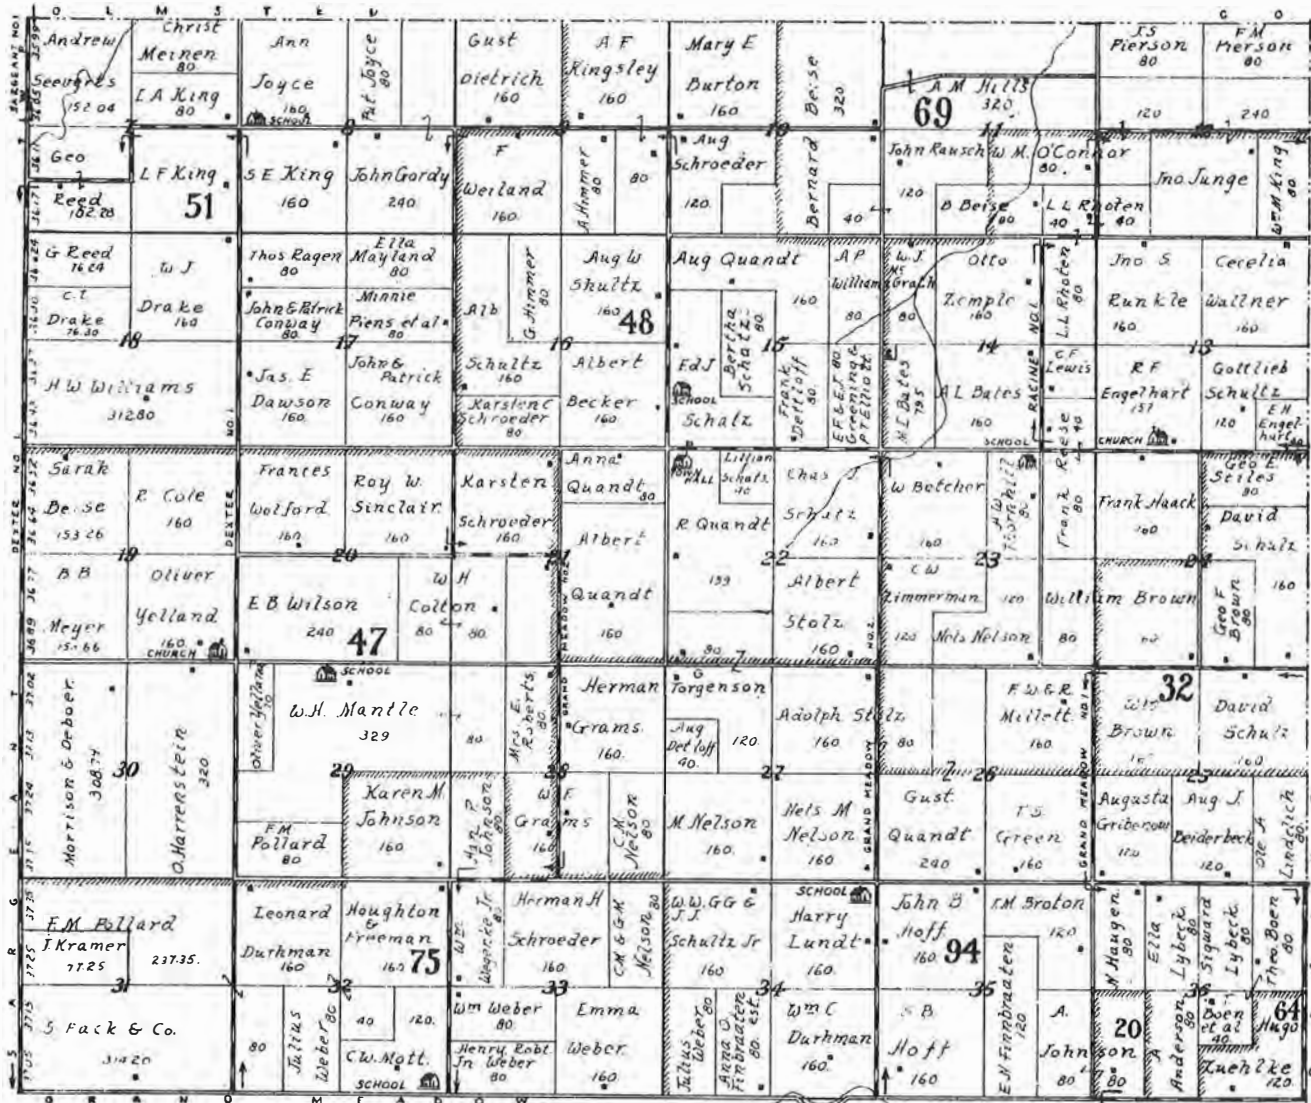 O L M S T E D C O
SARGEANT NO 1
Andrew
Seeverts
152.04
Christ
Meinen
80
I A King
80
Ann
Joyce
160
SCHOOL
Pat. Joyce
80
Gust
Dietrich
160
A F
Kingsley
160
Mary E
Burton
160
Beise
320
Bernard
A M Hills
320
69
J.S
Pierson
80
F M
Pierson
80
120
240
Geo
Reed
L F King
51
S E King
160
John Gordy
240
F
Weiland
160
A Himmer
80
80
Aug
Schroeder
120
40
John Rausch
120
W M. O'Connor
80
B Beise
80
L L Rhoten
40
40
Jno Junge
Wm King
80
G Reed
76.24
C. T.
Drake
76.30
W J
Drake
160
18
Thos Ragen
80
Ella
Mayland
80
John & Patrick
Conway
80
Minnie
Piens et al
80
17
G. Himmer
80
Alb
Schultz
160
Aug W
Shultz
160
48
16
Aug Quandt
160
Bertha
Schatz
80
15
A P
Williams
80
W. J.
McGrath
80
Otto
Zemple
160
14
L.L Rhoten
80
RACINE NO. 1
Jno S
Runkle
160
Cecelia
Wallner
160
13
H W Williams
312.80
Jas. E
Dawson
160
John &
Patrick
Conway
160
Karsten C
Schroeder
80
Albert
Becker
160
Ed J
SCHOOL
Schatz
Frank
Detloff
80
E F & E J
Greening &
P T Elliott
M E Bates
79.5
A L Bates
160
SCHOOL
C. F.
Lewis
40
R F
Engelhart
157
CHURCH
Gottlieb
Schultz
120
E H
Engelhart
40
DEXTER NO. 1
Sarah
Beise
153.26
R Cole
160
19
Frances
Wolford
160
Roy W.
Sinclair
160
20
Karsten
Schroeder
160
21
Anna
Quandt
80
Albert
Quandt
160
TOWN HALL
Lillian
Schatz
40
R Quandt
159
80
Chas J.
Schatz
160
22
Albert
Stolz
160
W Betcher
160
H W
80
23
Frank Reese
80
Frank Haack
160
Geo E
Stiles
80
David
Schulz
160
24
B B
Meyer
Oliver
Yelland
160
CHURCH
E B Wilson
240
47
W H
Colton
80
80
C W
Zimmerman
120
Nels Nelson
120
William Brown
80
Geo F
Brown
80
Morrison & Deboer
308.74
30
O. Harrenstein
320
Oliver Yelland
SCHOOL
W.H. Mantle
329
29
80
Mrs. E.
Roberts
80
Herman
Grams
160
28
Torgenson
Aug
Detloff
40
120
27
Adolph Stolz
160
80
26
F. W & R.
Millett
160
32
Wm
Brown
David
Schulz
160
25
F M
Pollard
80
Karen M
Johnson
160
Han. P
Johnson
80
W F
Grams
160
C. K.
Nelson
80
M Nelson
160
Nels M
Nelson
160
GRAND MEADOW NO. 2
Gust.
Quandt
240
T S
Green
160
GRAND MEADOW NO 1
Augusta
120
Aug J.
Beiderbeck
120
Ole A
Lindelich
80
F.M. Pollard
237.35
J Kramer
77.25
31
S Fack & Co.
314.20
Leonard
Durhman
160
Houghton
&
Freeman
160
75
32
Wm
Wagenke Jr
80
Herman H
Schroeder
160
33
C M & G M
Nelson 80
W.W. G G &
J J
Schultz Jr
160
SCHOOL
Harry
Lundt
160
34
John B
Hoff
160
94
I.M. Broton
120
35
N Haugen
80
Ella
Lybeck
Siguard
Lybeck
80
Theo Boen
80
36
80
Julius
Weber
80
40
120
C.W. Mott
SCHOOL
Wm Weber
80
Henry, Robt
Jn Weber
80
Emma
Weber
160
Julius
Weber
80
Anna O
Finbraten
est.
80
Wm C
Durhman
160
S B
Hoff
160
E.N Finnbraaten
120
A.
Johnson
80
20
80
A
Anderson
80
Boen
et al
40
64
Hugo
Zuehlke
120
S A R G E A N T
G R A N D M E A D O W